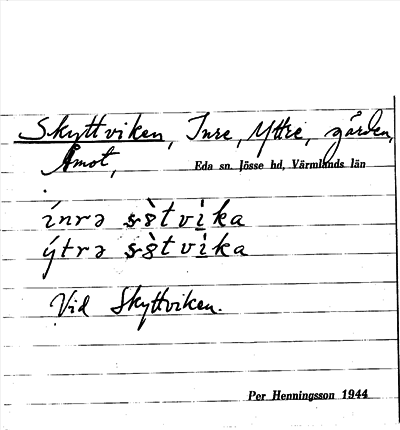 Skyttviken, Inre, Yttre, gården,
Åmot,
Eda sn. Jösse hd, Värmlands län
ínrə
ýtrə
Vid Skyttviken.
Per Henningsson 1944